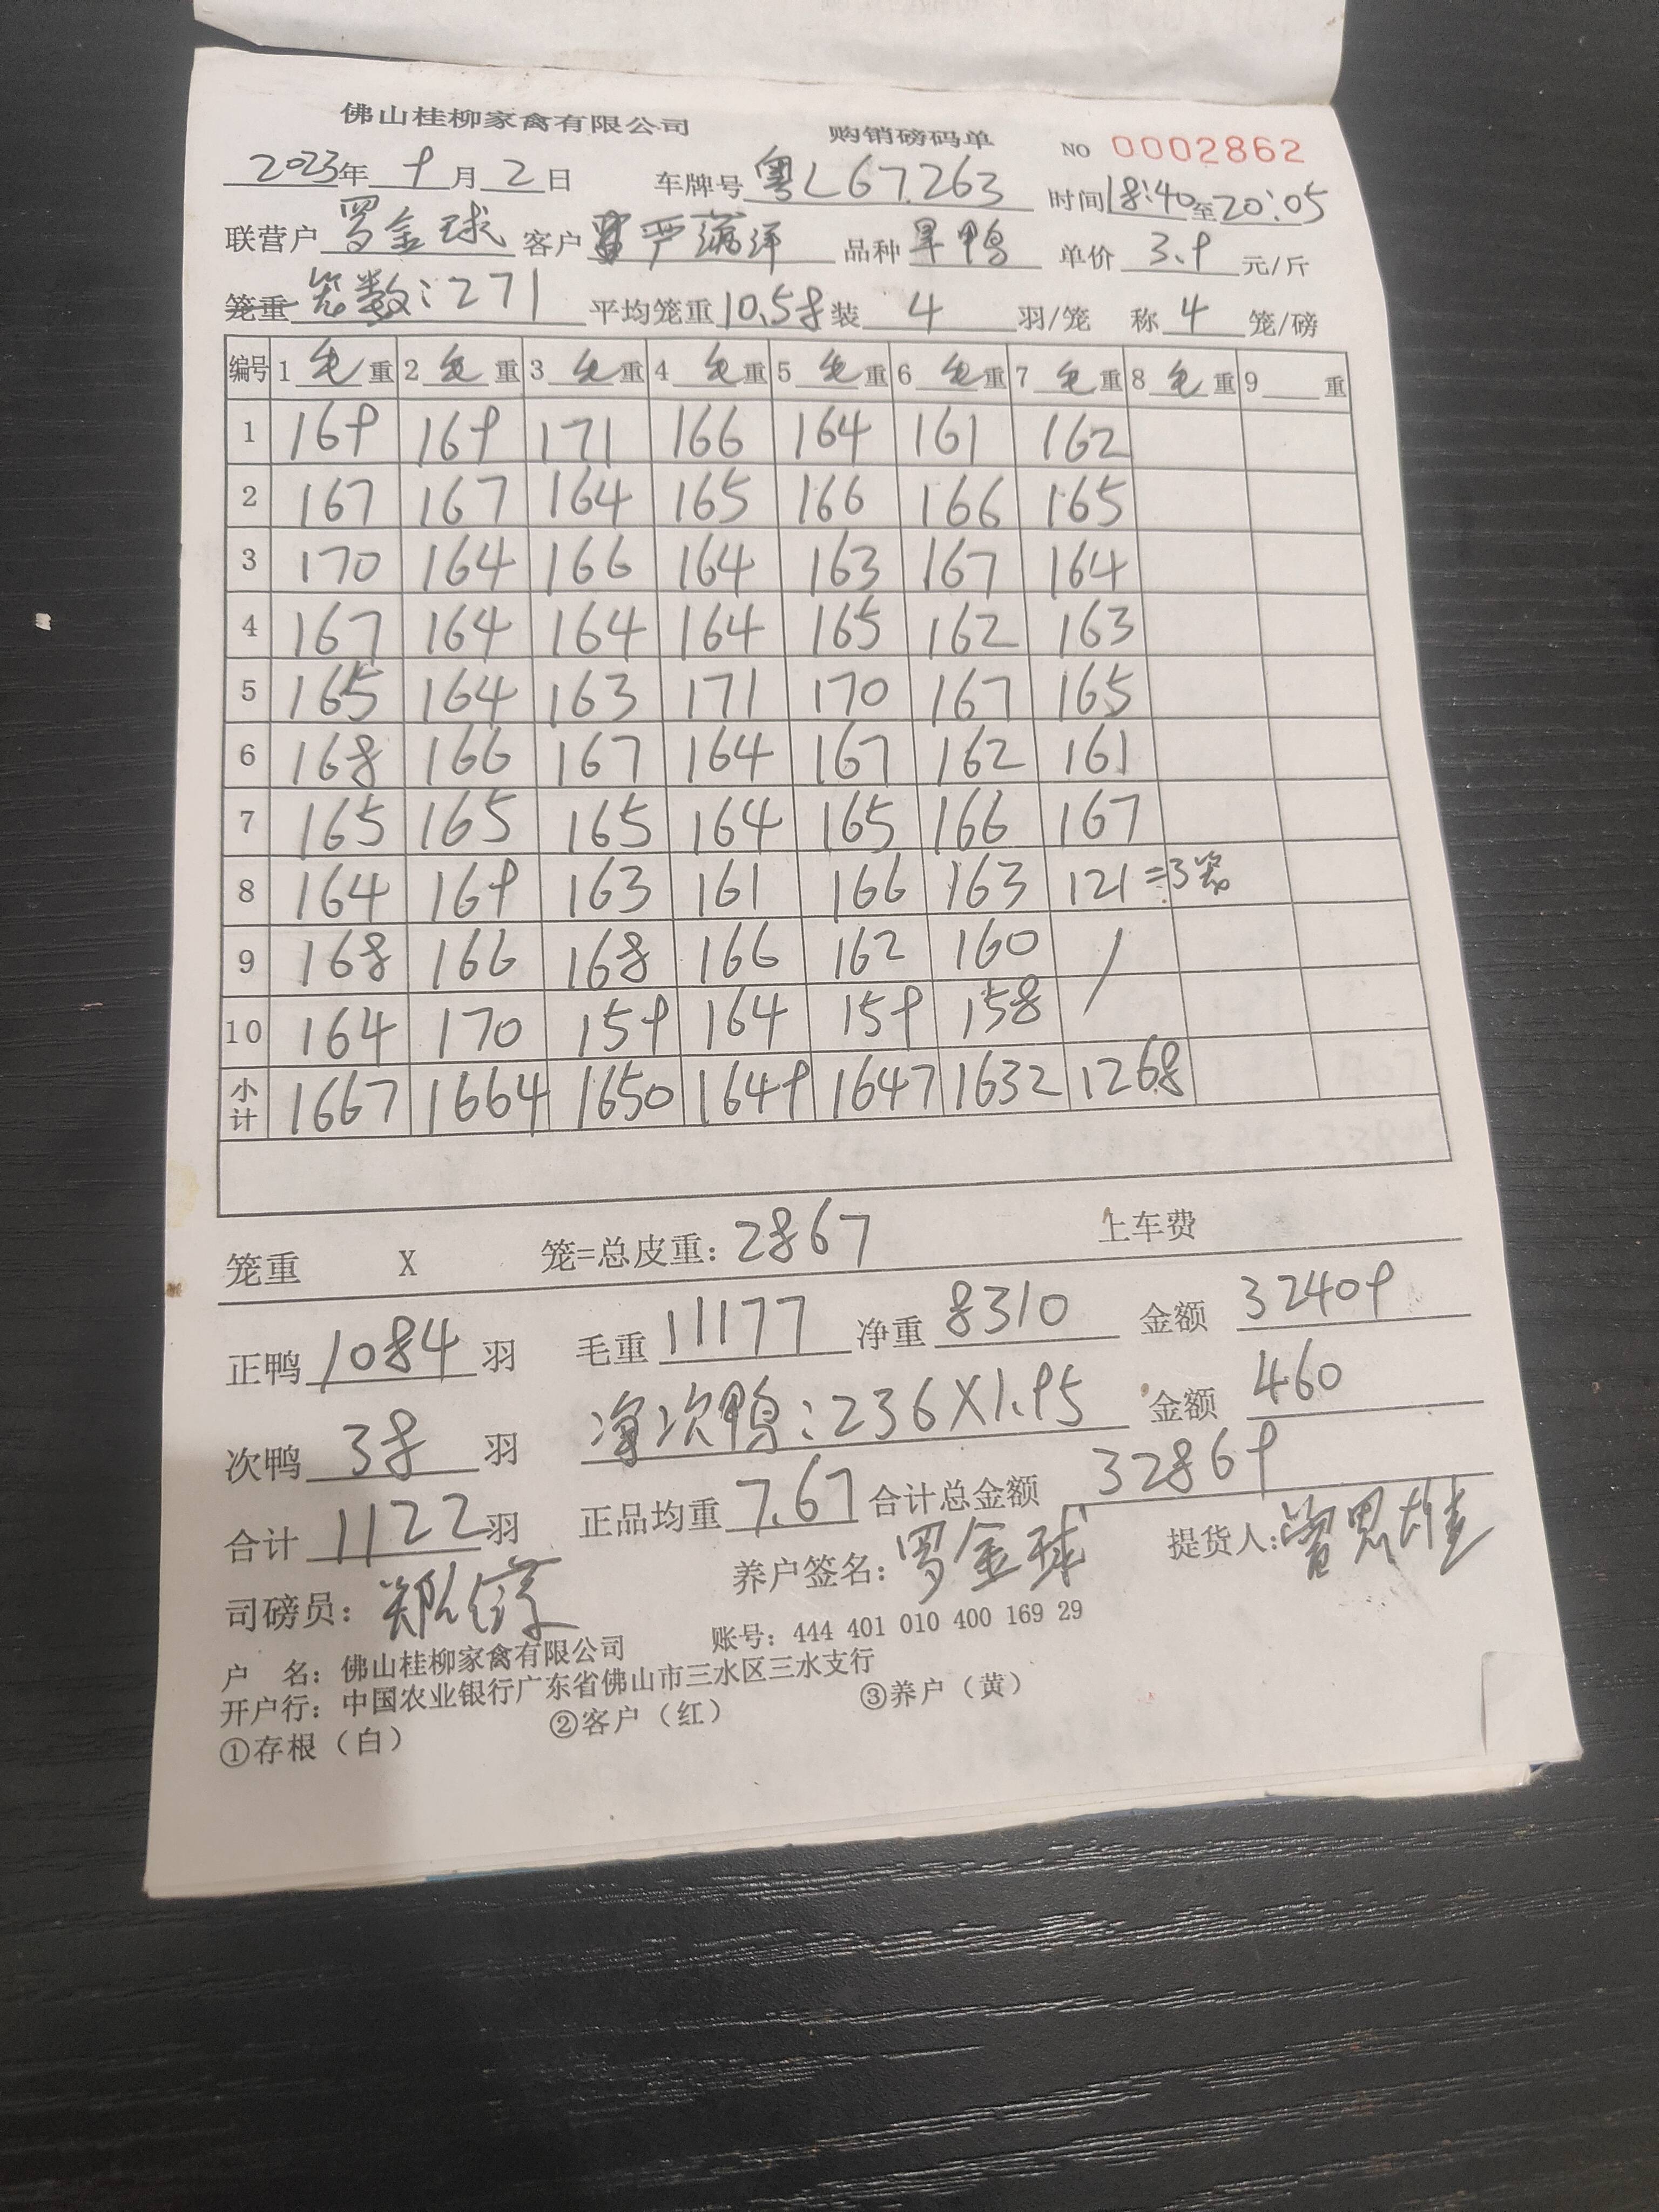 佛山桂柳家禽有限公司 购销磅码单 NO 0002862
2023年 9月 2日 车牌号 粤L67263 时间18:40至20:05
联营户 罗金球 客户 严 品种 旱鸭 单价 3.9 元/斤
笼重 笼数:271 平均笼重10.58 装 4 羽/笼 称 4 笼/磅
编号 1 毛 重 2 毛 重 3 毛 重 4 毛 重 5 毛 重 6 毛 重 7 毛 重 8 毛 重 9 重
1 169 169 171 166 164 161 162
2 167 167 164 165 166 166 165
3 170 164 166 164 163 167 164
4 167 164 164 164 165 162 163
5 165 164 163 171 170 167 165
6 168 166 167 164 167 162 161
7 165 165 165 164 165 166 167
8 164 169 163 161 166 163 121=3笼
9 168 166 168 166 162 160 /
10 164 170 159 164 159 158
小计 1667 1664 1650 1649 1647 1632 1268
笼重 X 笼=总皮重: 2867 上车费
正鸭 1084 羽 毛重 11177 净重 8310 金额 32409
次鸭 38 羽 净次鸭:236X1.95 金额 460
合计 1122 羽 正品均重 7.67 合计总金额 32869
司磅员: 郑 养户签名: 罗金球 提货人:
户 名: 佛山桂柳家禽有限公司 账号: 444 401 010 400 169 29
开户行: 中国农业银行广东省佛山市三水区三水支行
①存根(白) ②客户(红) ③养户(黄)